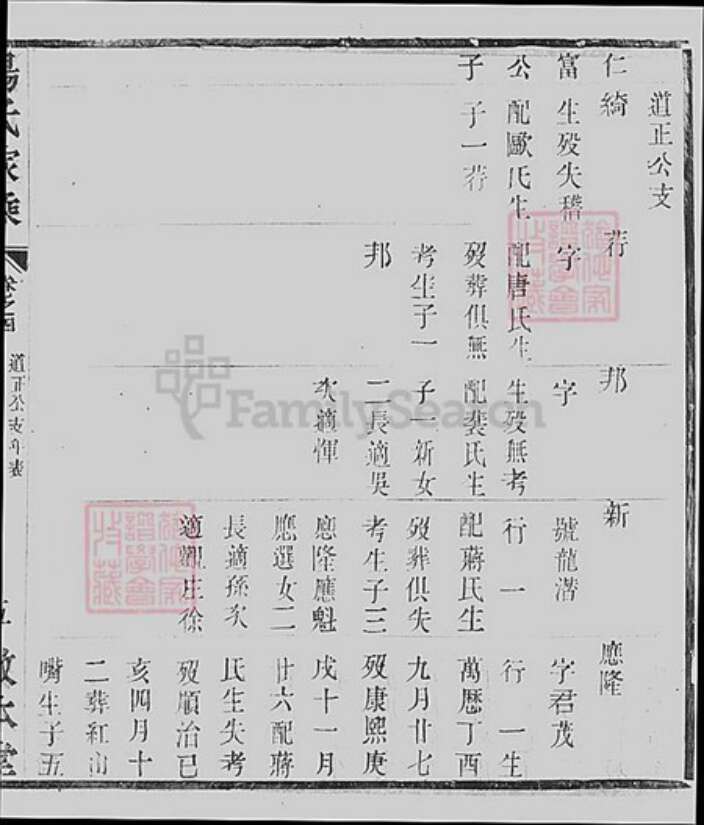 道正公支
仁綺
富
公
子
生歿失稽
配歐氏生
子一荇
荇
字
配唐氏生
歿葬俱無
考生子一
邦
邦
字
生歿無考
配裴氏生
子一新女
二長適吳
次適惲
新
號龍潛
行一
配蔣氏生
歿葬俱失
考生子三
應隆應魁
應選女二
長適孫次
適觀庄徐
應隆
字君茂
行一生
萬歷丁酉
九月廿七
歿康熙庚
戌十一月
廿六配蔣
氏生失考
歿順治己
亥四月十
二葬紅山
嘴生子五
氏家乘
道正公支年表
FamilySearch